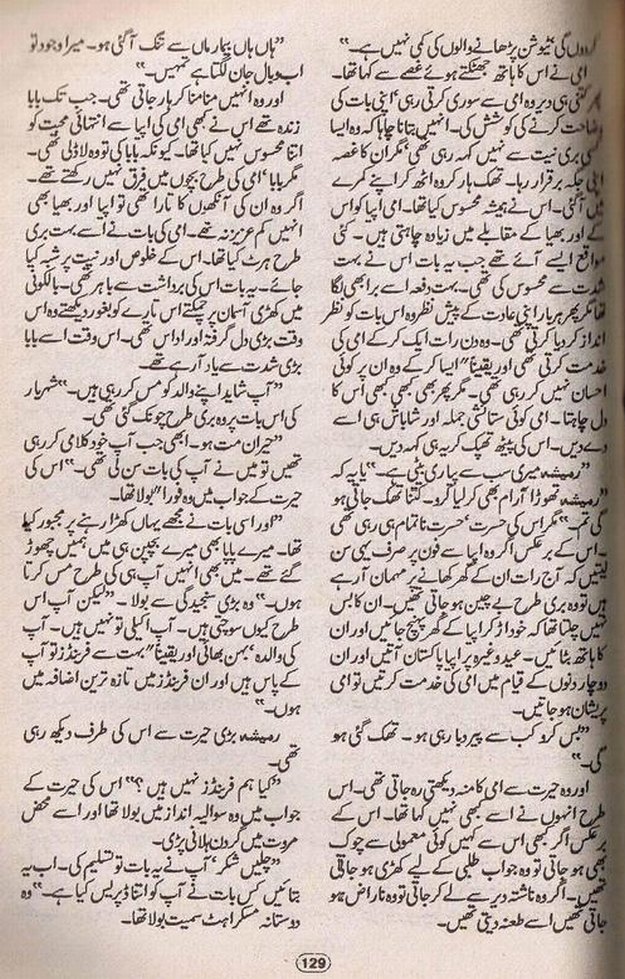 کروں گی ٹیوشن پڑھانے والوں کی کمی نہیں ہے۔"
امی نے اس کا ہاتھ جھٹکتے ہوئے غصے سے کہا تھا۔
پھر کتنی ہی دیر وہ امی سے سوری کرتی رہی، اپنی بات کی
وضاحت کرنے کی کوشش کی۔ انہیں بتانا چاہا کہ وہ ایسا
کسی بری نیت سے نہیں کہہ رہی تھی، مگر ان کا غصہ
اپنی جگہ برقرار رہا۔ تھک ہار کر وہ اٹھ کر اپنے کمرے
میں آ گئی۔ اس نے ہمیشہ محسوس کیا تھا۔ امی اپیا کو اس
کے اور بھیا کے مقابلے میں زیادہ چاہتی ہیں۔ کئی
مواقع ایسے آئے تھے جب یہ بات اس نے بہت
شدت سے محسوس کی تھی۔ بہت دفعہ اسے برا بھی لگا
تھا مگر پھر ہر بار اپنی عادت کے پیش نظر وہ اس بات کو نظر
انداز کر دیا کرتی تھی۔ وہ دن رات ایک کر کے امی کی
خدمت کرتی تھی اور یقیناً ایسا کر کے وہ ان پر کوئی
احسان نہیں کر رہی تھی۔ مگر پھر بھی کبھی کبھی اس کا
دل چاہتا۔ امی کوئی ستائشی جملہ اور شاباش ہی اسے
دے دیں۔ اس کی پیٹھ تھپک کر یہ ہی کہہ دیں۔
"رمیشہ میری سب سے پیاری بیٹی ہے۔" یا یہ کہ
"رمیشہ تھوڑا آرام بھی کر لیا کرو۔ کتنا تھک جاتی ہو
گی تم۔" مگر اس کی حسرت، حسرت ناتمام ہی رہی تھی
۔ اس کے برعکس اگر وہ اپیا سے فون پر صرف یہی سن
لیتیں کہ آج رات ان کے گھر کھانے پر مہمان آ رہے
ہیں تو وہ بری طرح بے چین ہو جاتی تھیں۔ ان کا بس
نہیں چلتا تھا کہ خود اڑ کر اپیا کے گھر پہنچ جائیں اور ان
کا ہاتھ بٹائیں۔ عید وغیرہ پر اپیا پاکستان آتیں اور ان
دو چار دنوں کے قیام میں امی کی خدمت کرتیں تو امی
پریشان ہو جاتیں۔
"بس کرو کب سے پیر دبا رہی ہو۔ تھک گئی ہو
گی۔"
اور وہ حیرت سے امی کا منہ دیکھتی رہ جاتی تھی۔ اس
طرح انہوں نے اسے کبھی نہیں کہا تھا۔ اس کے
برعکس اگر کبھی اس سے کہیں کوئی معمولی سے چوک
بھی ہو جاتی تو وہ جواب طلبی کے لیے کھڑی ہو جاتی
تھیں۔ اگر وہ ناشتہ دیر سے لے کر جاتی تو وہ ناراض ہو
جاتی تھیں اسے طعنہ دیتی تھیں۔
"ہاں ہاں بیمار ماں سے تنگ آ گئی ہو۔ میرا وجود تو
اب وبال جان لگتا ہے تمہیں۔"
اور وہ انہیں منا منا کر ہار جاتی تھی۔ جب تک بابا
زندہ تھے اس نے بھی امی کی اپیا سے انتہائی محبت کو
اتنا محسوس نہیں کیا تھا۔ کیونکہ بابا کی تو وہ لاڈلی تھی۔
مگر بابا، امی کی طرح بچوں میں فرق نہیں رکھتے تھے۔
اگر وہ ان کی آنکھوں کا تارا تھی تو اپیا اور بھیا بھی
انہیں کم عزیز نہ تھے۔ امی کی بات نے اسے بہت بری
طرح ہرٹ کیا تھا۔ اس کے خلوص اور نیت پر شبہ کیا
جائے۔ یہ بات اس کی برداشت سے باہر تھی۔ بالکونی
میں کھڑی آسمان پر چمکتے اس تارے کو بغور دیکھتے وہ اس
وقت بڑی دل گرفتہ اور اداس تھی۔ اس وقت اسے بابا
بڑی شدت سے یاد آ رہے تھے۔
"آپ شاید اپنے والد کو مس کر رہی ہیں۔" شہریار
کی اس بات پر وہ بری طرح چونک گئی تھی۔
"حیران مت ہو۔ ابھی جب آپ خود کلامی کر رہی
تھیں تو میں نے آپ کی بات سن لی تھی۔" اس کی
حیرت کے جواب میں وہ فوراً بولا تھا۔
"اور اسی بات نے مجھے یہاں کھڑا رہنے پر مجبور کیا
تھا۔ میرے پاپا بھی میرے بچپن ہی میں ہمیں چھوڑ
گئے تھے۔ میں بھی انہیں آپ ہی کی طرح مس کرتا
ہوں۔" وہ بڑی سنجیدگی سے بولا۔ "لیکن آپ اس
طرح کیوں سوچتی ہیں۔ آپ اکیلی تو نہیں ہیں۔ آپ
کی والدہ، بہن بھائی اور یقیناً بہت سے فرینڈز تو آپ
کے پاس ہیں اور ان فرینڈز میں تازہ ترین اضافہ میں
ہوں۔"
رمیشہ بڑی حیرت سے اس کی طرف دیکھ رہی
تھی۔
"کیا ہم فرینڈز نہیں ہیں؟" اس کی حیرت کے
جواب میں وہ سوالیہ انداز میں بولا تھا اور اسے محض
مروت میں گردن ہلانی پڑی۔
"چلیں شکر، آپ نے یہ بات تو تسلیم کی۔ اب یہ
بتائیں کس بات نے آپ کو اتنا ڈپریس کیا ہے۔" وہ
دوستانہ مسکراہٹ سمیت بولا تھا۔
129